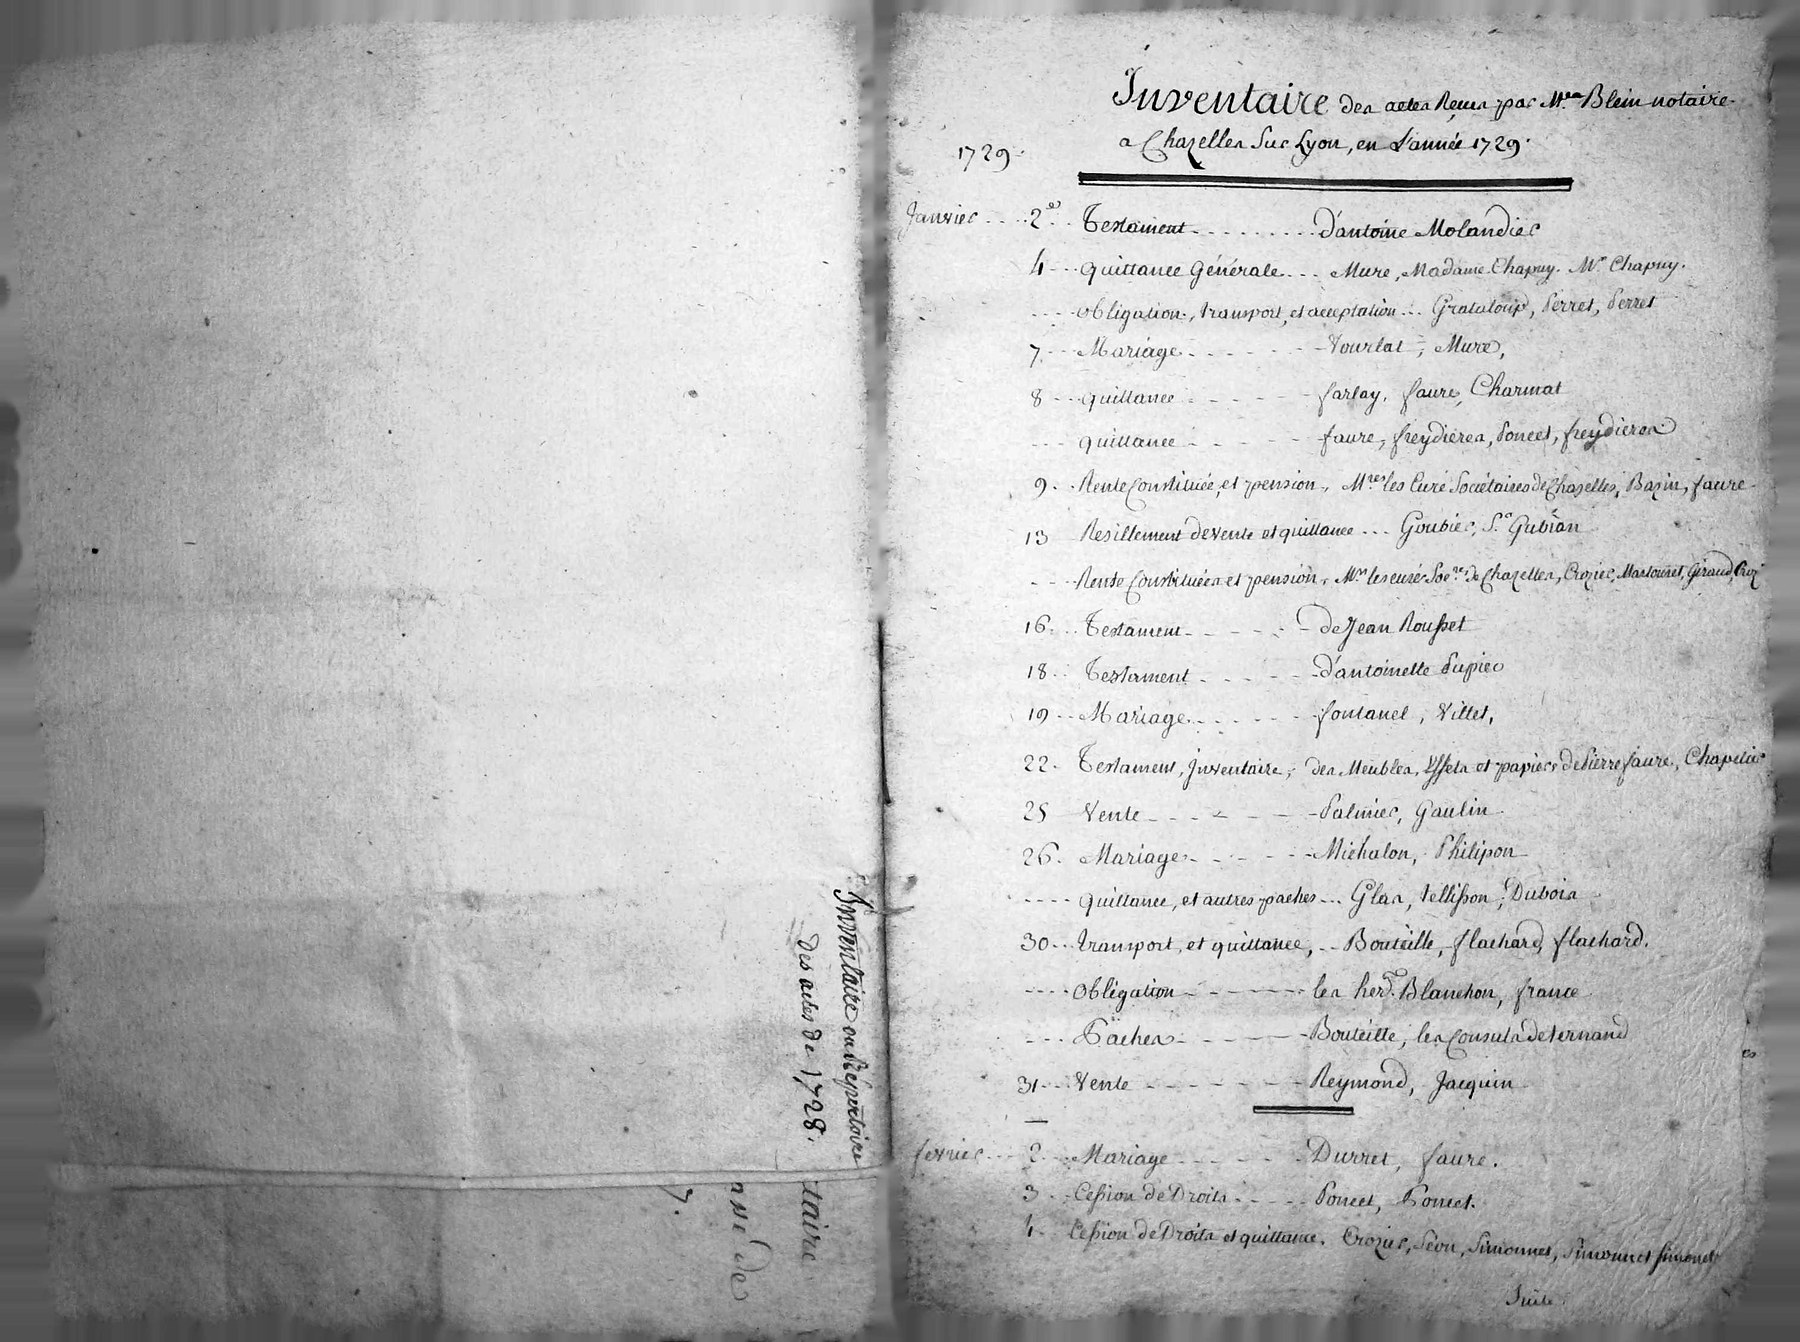 Inventaire ou Répertoire
des actes de 1728.
taire
de
Inventaire des actes Reçus par M.re Blein notaire
a Chazelles Sur Lyon, en L'année 1729.
1729.
Janvier .... 2e .. Testament ......... d'antoine Molandier
4 ... quittance Générale .... Mure, Madame Chapuy. Mr Chapuy.
.... obligation, transport, et acceptation ... Grataloup, Perret, Perret
7 ... Mariage ....... Vourlat, Mure,
8 ... quittance ...... farlay, faure, Charmat
... quittance ...... faure, freydieres, Poncet, freydieres
9 .. Rente Constituée, et pension, Mres les Curé Sociétaires de Chazelles, Bazin, faure
13 Resillement de vente et quittance ... Goubier, Sr Gubian
.... Rente Constituées et pension, Mrs les curé Soc.res de Chazelles, Crozier, Mastouret, Giraud, Croz.
16 ... Testament ...... de Jean Rousset
18 .. Testament ...... d'antoinette Pupier
19 ... Mariage ...... fontanel, Villet,
22 .. Testament, Inventaire, des Meubles, Effets et papiers de Pierre faure, Chapelier
25 Vente ...... Palmier, Gaulin
26 .. Mariage ...... Michalon, Philipon
.... quittance, et autres paches ... Glas, tellisson, Dubois
30 ... transport, et quittance, ... Bouteille, flachard, flachard.
.... Obligation ...... les herd. Blanchon, france
... Paches ...... Bouteille, les Consuls de Vernand
31 ... Vente ...... Reymond, Jacquin
fevrier ... 2 ... Mariage ...... Durret, faure.
3 ... Cession de Droits ..... Poncet, Poncet.
4 .. Cession de Droits et quittance. Crozier, Seon, Simonnet, Simonnet Simonet
Suite